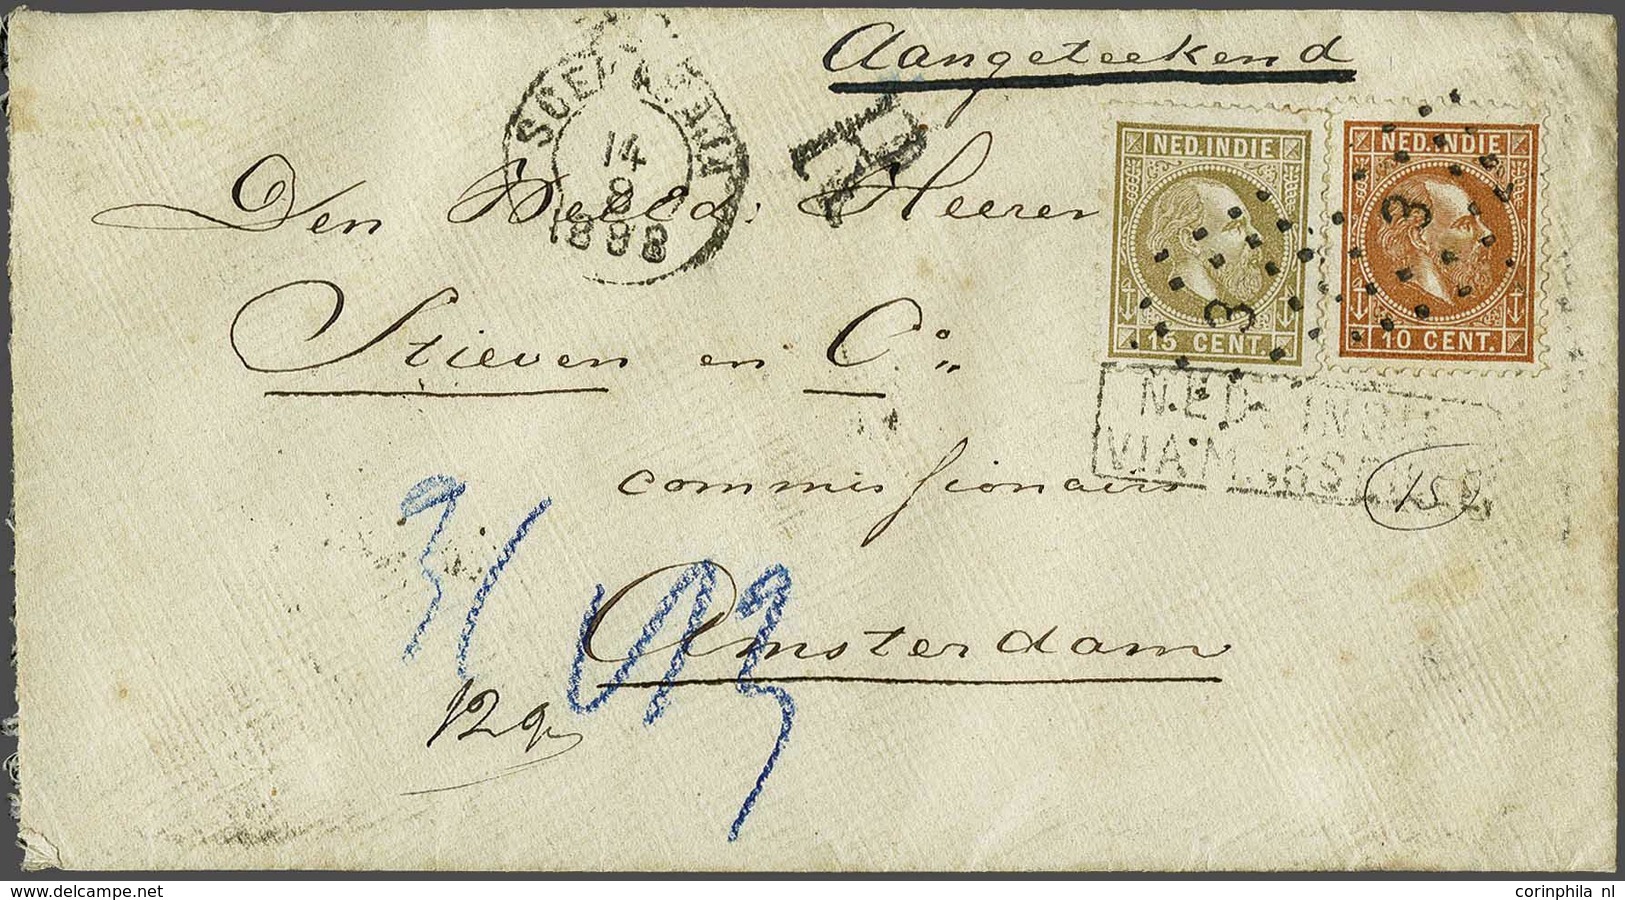 Aangeteekend
SOERABAIJA
14
8
1888
R
NED. INDIE
15 CENT.
NED. INDIE
10 CENT.
3
3
Den Heeren
Stieven en Co
NED. INDIE
VIA MARSEILLE
commissionairs
15
3/
Amsterdam
www.delcampe.net
corinphila nl